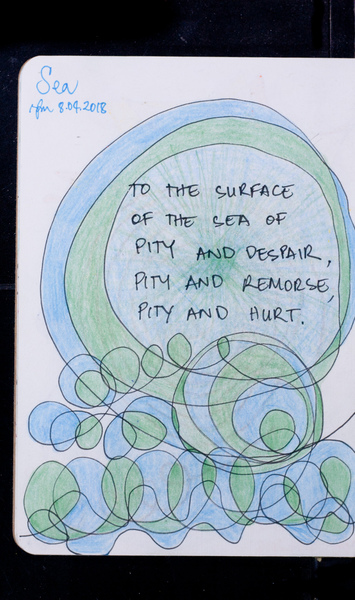 Sea
rfm 8.04.2018
TO THE SURFACE
OF THE SEA OF
PITY AND DESPAIR,
PITY AND REMORSE,
PITY AND HURT.